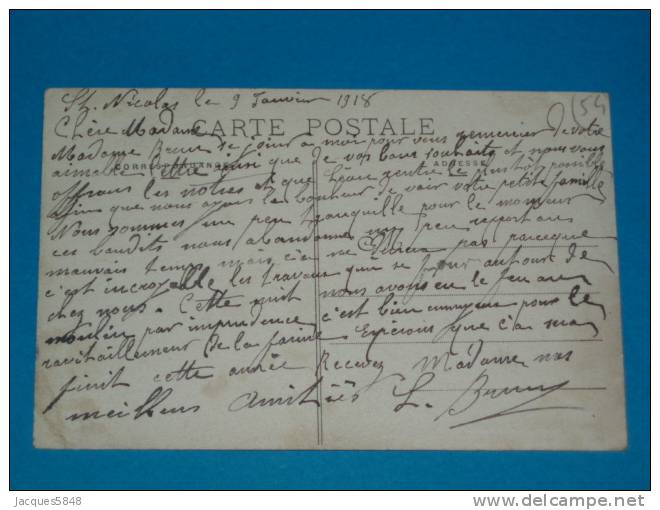 St. Nicolas le 9 Janvier 1918
(54
Chère Madame
CARTE POSTALE
CORRESPONDANCE
ADRESSE
Madame se joint a moi pour vous remercier de votre
aimable lettre ainsi que de vos bons souhaits et nous vous
offrons les notres et que rentre le plustôt possible
afin que nous ayons le bonheur de voir votre petite famille
Nous sommes un peu tranquille pour le moment
ces bandits nous abandonne un peu rapport au
mauvais temps mais ça ne pas parceque
c'est incroyable les travaux que se autours de
chez nous. Cette nuit nous avons eu le feu au
moulin par imprudence c'est bien ennuyeux pour le
ravitaillement de la farine Espérons que ça sera
finit cette année Recevez Madame nos
meilleurs Amitiés L.
Jacques5848
delcampe.net